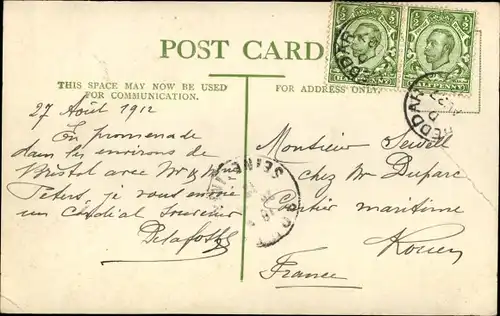 POST CARD
THIS SPACE MAY NOW BE USED
FOR COMMUNICATION.
FOR ADDRESS ONLY.
27 Août 1912
En promenade
dans les environs de
Bristol avec Mr & Mme
Peters, je vous envoie
un Cordial Souvenir
Monsieur Sewell
chez Mr Duparc
Courtier maritime
Rouen
France
CHEDDAR
CHEDDAR
SEINE